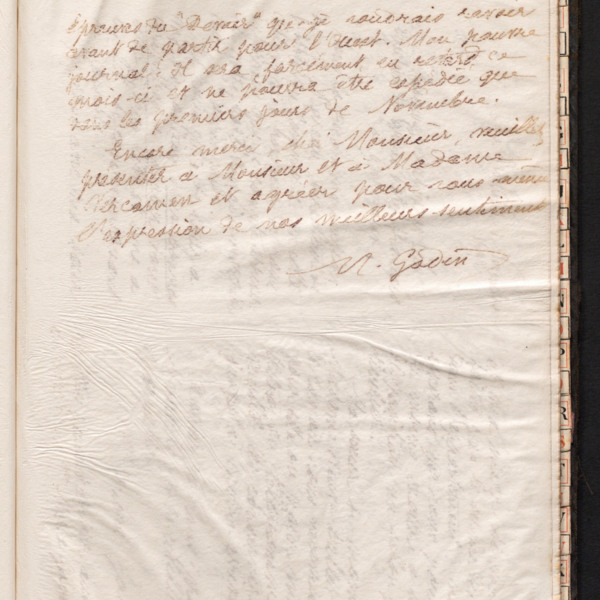 épreuves du "Devoir" que je voudrais savoir
avant de partir pour l'Ouest. Mon pauvre
journal, il sera forcément en retard ce
mois-ci et ne pourra être expédié que
dans les premiers jours de Novembre.
Encore merci, cher Monsieur, veuillez
présenter à Monsieur et à Madame
et agréer pour vous même
l'expression de nos meilleurs sentiments
M. Godin
R
S
T